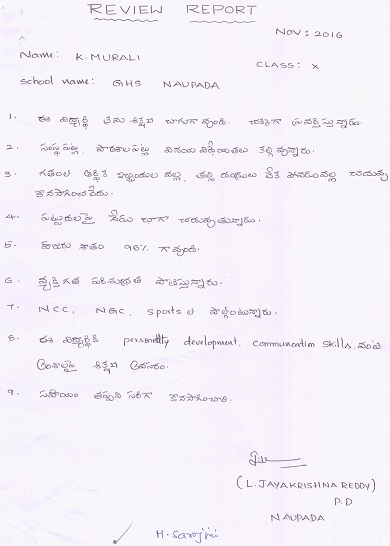 REVIEW REPORT
NOV: 2016
Name: K. MURALI
CLASS: X
School name: GHS NAUPADA
1. ఈ విద్యార్థి క్రమ శిక్షణ బాగుగా వుంది. చక్కగా ప్రవర్తిస్తున్నాడు.
2. సంస్థ పట్ల, పాఠశాల పట్ల వినయ విధేయతలు కల్గి వున్నారు.
3. గతంలో ఆర్థిక ఇబ్బందుల వల్ల, తల్లి దండ్రులు లేక పోవడంవల్ల చదువు
కొనసాగించలేదు.
4. పట్టుదలపై నేడు బాగా చదువుతున్నారు.
5. హాజరు శాతం 96% గా వుంది.
6. వ్యక్తి గత పరిశుభ్రత పాటిస్తున్నారు.
7. NCC, NGC, Sports ల పాల్గొంటున్నారు.
8. ఈ విద్యార్థికి personality development, communication skills వంటి
అంశాలపై శిక్షణ అవసరం.
9. సహాయం తప్పని సరిగా కొనసాగించాలి.
(L. JAYAKRISHNA REDDY)
P.D
NAUPADA
M. Sarojini